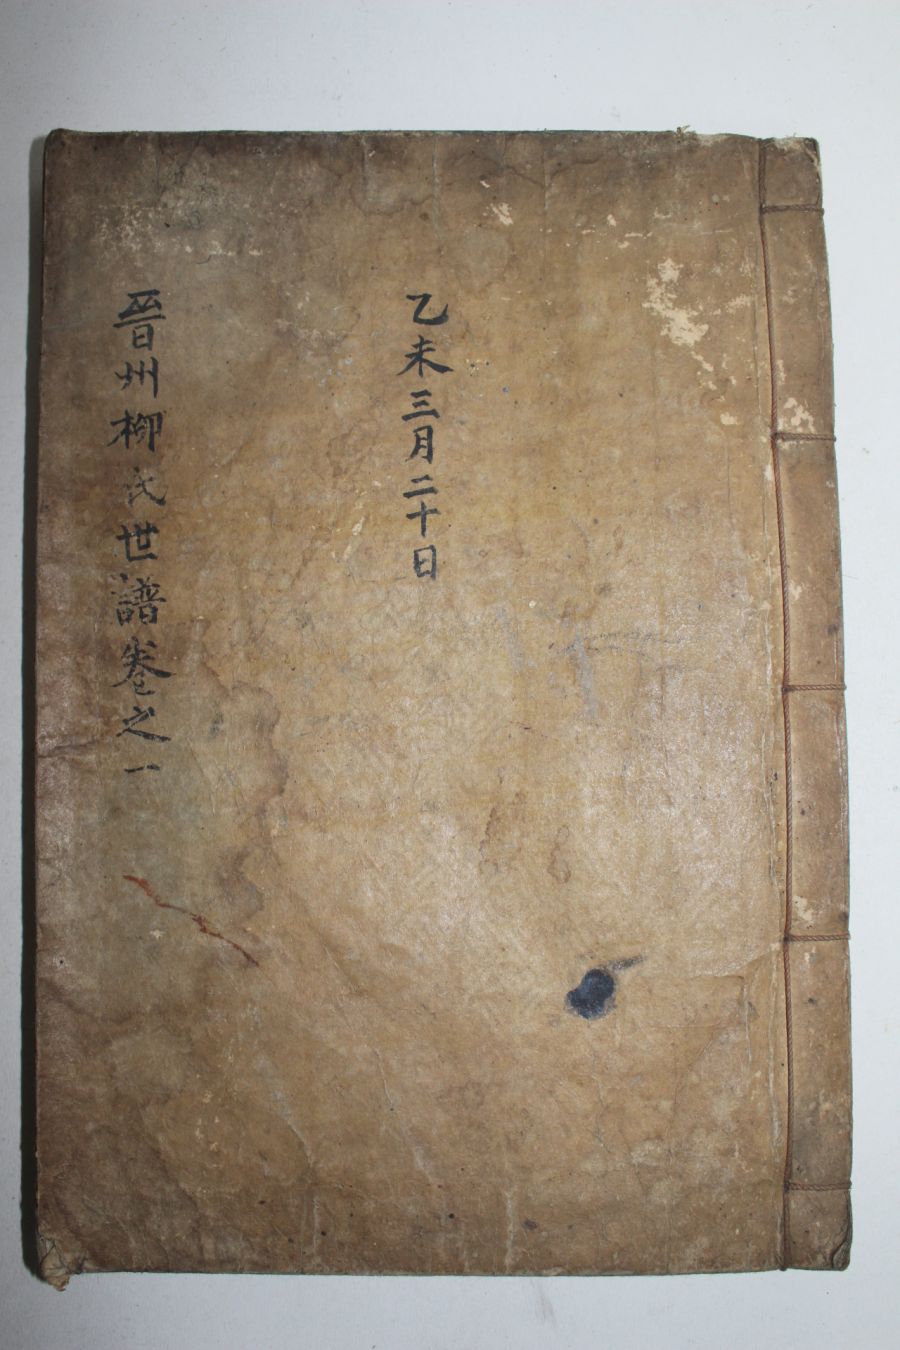 乙未三月二十日
晉州柳氏世譜卷之一